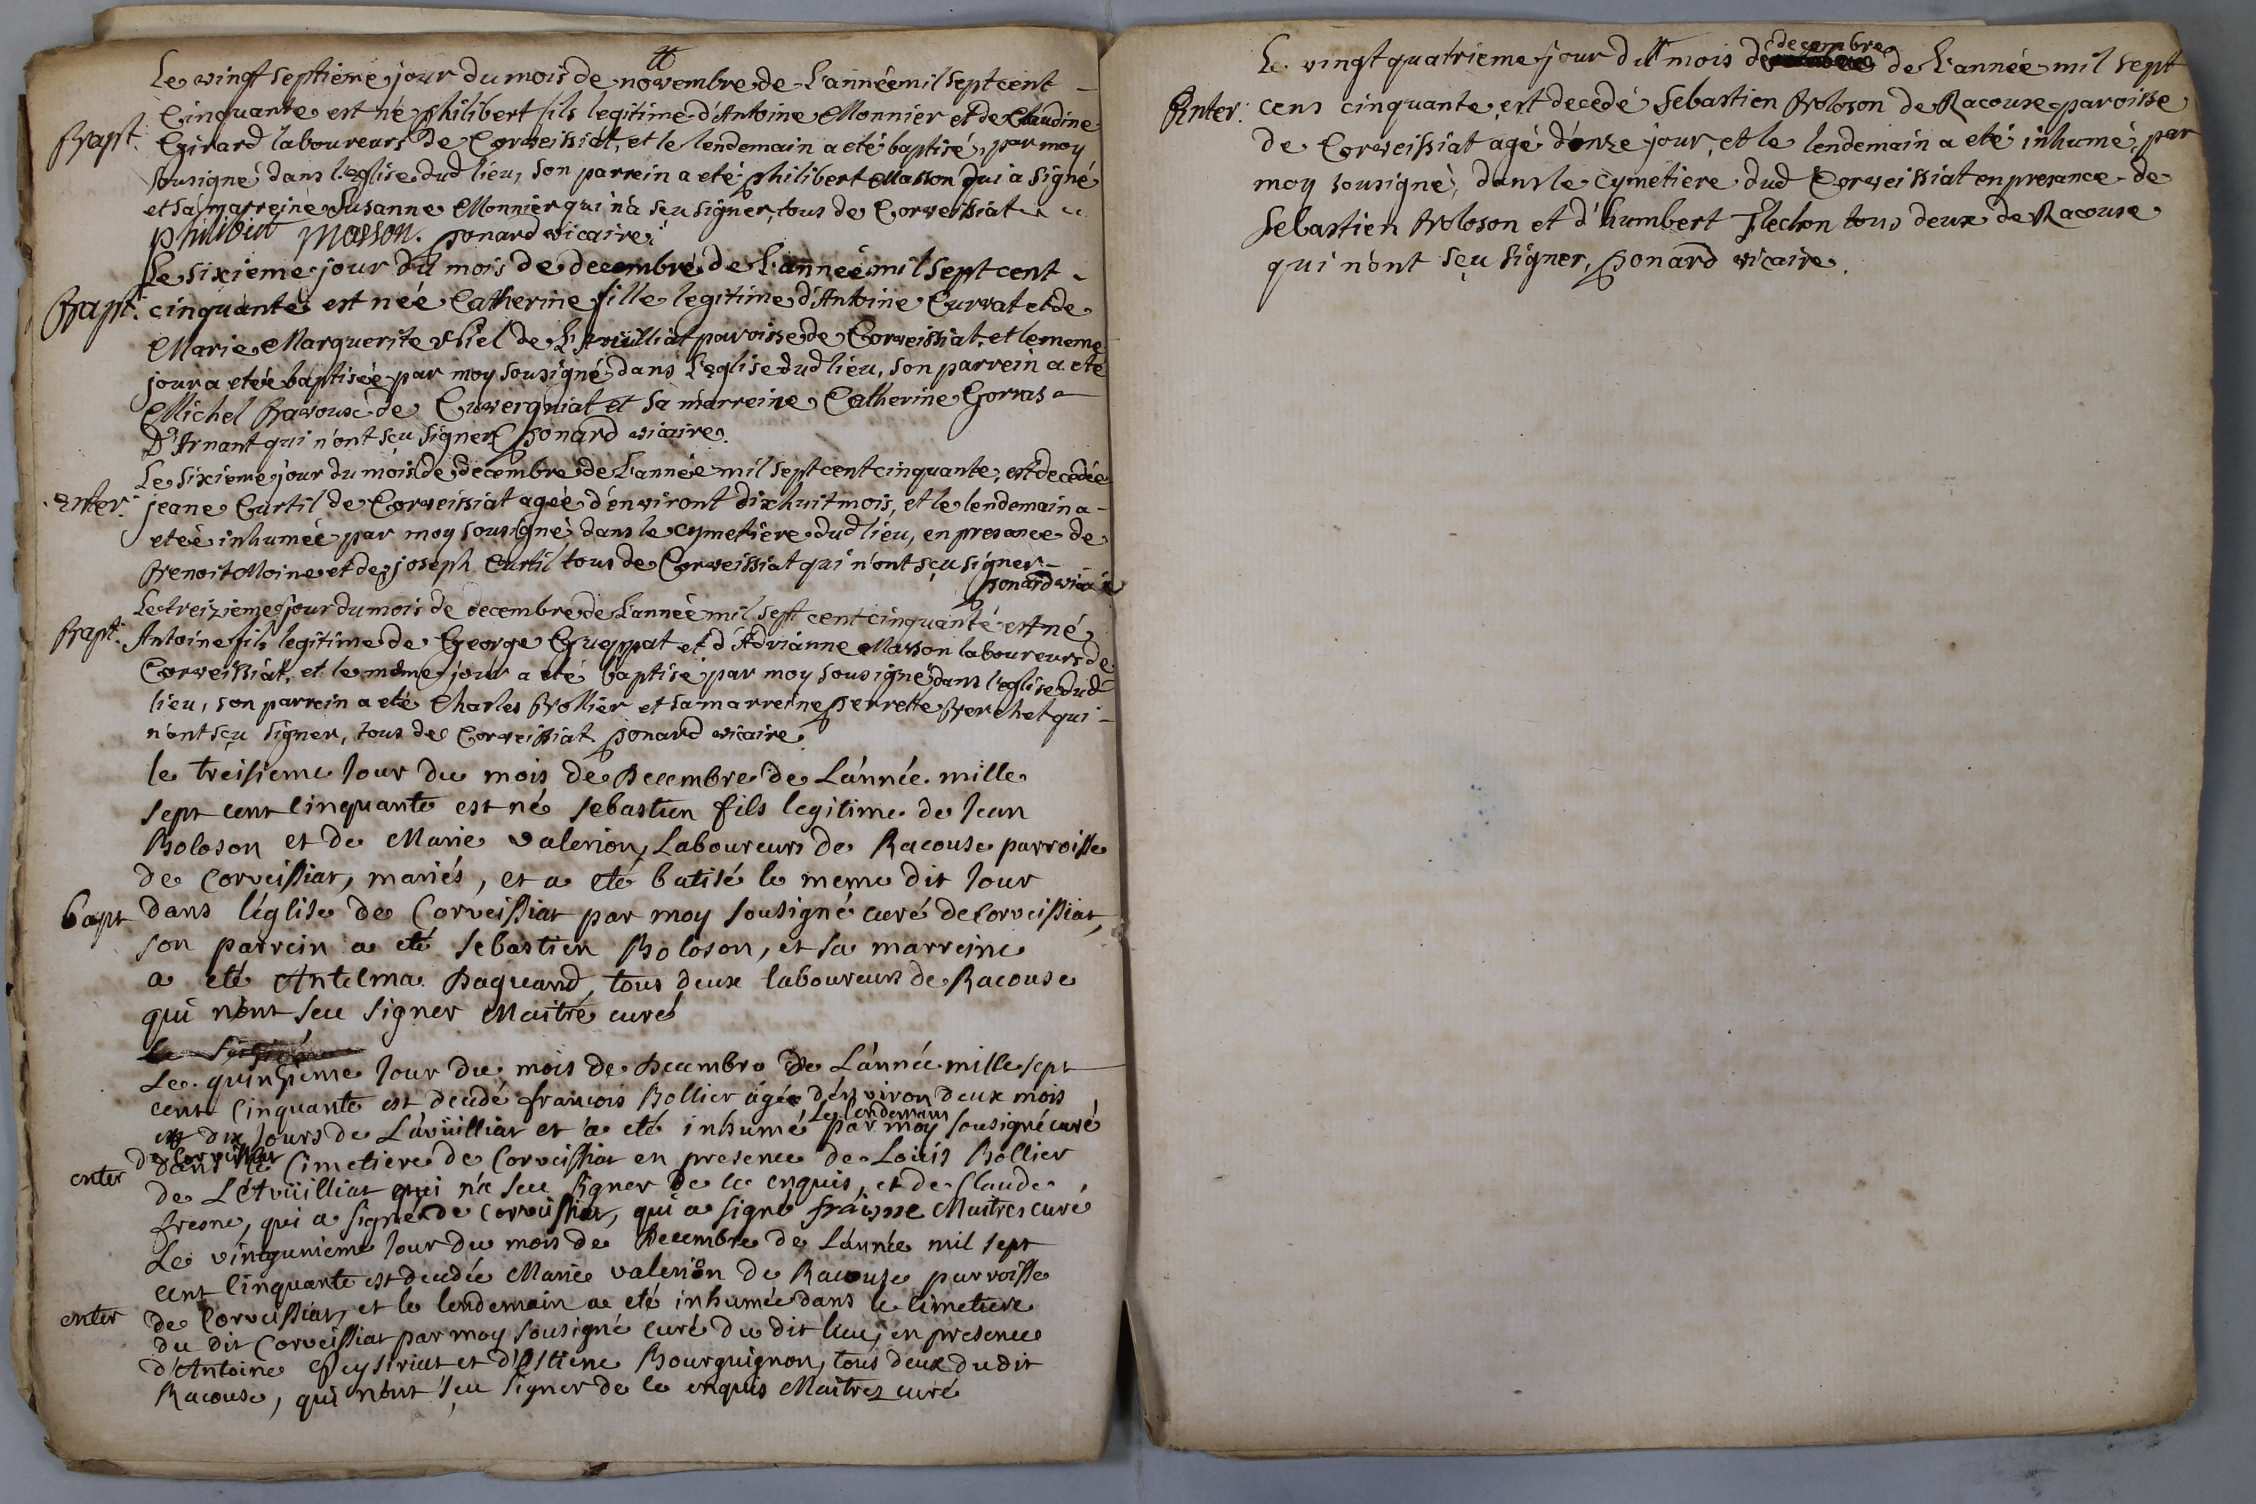 Le vingt septieme jour du mois de novembre de L'année mil sept cent
Cinquante est né philibert fils legitime d'Antoine Monnier et de Claudine
Bapt. Girard laboureurs de Corveissiat, et le lendemain a eté baptisé, par moy
sousigné dans l'eglise dud lieu, son parrein a eté philibert Masson qui a signé
et sa marreine Susanne Monnier qui n'a seu signer, tous de Corveissiat
philibert masson. ponard vicaire
Le sixieme jour du mois de decembre de L'année mil sept cent
Bapt. cinquante est née Catherine fille legitime d'Antoine Curvat et de
Marie Marguerite paroisse de Corveissiat, et le meme
jour a eteé baptiseé par moy sousigné dans l'eglise dud lieu, son parrein a eté
Michel de et sa marreine Catherine Gorras
D'Arnant qui n'ont sçu signer ponard vicaire
Le sixieme jour du mois de decembre de L'année mil sept cent cinquante, est decedée
enter. jeane Curtil de Corveissiat ageé d'environt dixhuit mois, et le lendemain a
eteé inhumeé par moy sousigné, dans le cymetiere dud lieu, en presance de
Benoit Moine et de joseph Curtil tous de Corveissiat qui n'ont sçu signer
ponard vicaire
Le treizieme jour du mois de decembre de L'année mil sept cent cinquante est né
Bapt. Antoine fils legitime de George Gueppat et d'Adrianne Masson laboureurs de
Corveissiat, et le même jour a eté baptisé par moy sousigné dans l'eglise dud
lieu, son parrein a eté Charles Bollier et sa marreine perrette Berchet qui
n'ont sçu signer, tous de Corveissiat ponard vicaire
le treisieme Jour du mois de Decembre de L'année mille
sept cent Cinquante est né sebastien fils legitime de Jean
Boloson et de Marie valerion, Laboureurs de Racouse parroisse
de Corveissiat, mariés, et a eté batisé le meme dit Jour
bapt dans l'église de Corveissiat par moy sousigné curé de Corveissiat,
son parrein a eté sebastien Boloson, et sa marreine
a eté Antelma Daquand, tous deux laboureurs de Racouse
qui n'ont seu signer Maitre curé
Le quinsieme Jour du mois de Decembre de L'année mille sept
cent Cinquante est decedé francois Bollier âgée d'environ deux mois
et dix Jours de et a eté inhumé le lendemain par moy sousigné curé
de Corveissiat
enter dans le Cimetiere de Corveissiat en presence de Louis Bollier
de qui n'a seu signer de ce enquis, et de Claude
fresne, qui a signé de Corveissiat, qui a signé fraisne Maitre curé
Le vingunieme Jour du mois de Decembre de L'année mil sept
cent Cinquante est decedée Marie valerion de Racouse parroisse
enter de Corveissiat, et le lendemain a eté inhumée dans le Cimetiere
du dit Corveissiat par moy sousigné curé du dit lieu, en presence
d'Antoine Peysriat et d'Estiene Bourguignon, tous deux du dit
Racouse, qui n'ont seu signer de ce enquis Maitre curé
Le vingt quatrieme jour du mois de decembre de L'année mil sept
Enter. cens cinquante, est decedé Sebastien Boloson de Racouse paroisse
de Corveissiat agé d'onze jour, et le lendemain a eté inhumé, par
moy sousigné, dans le cymetiere dud Corveissiat en presance de
Sebastien Boloson et d'humbert flechon tous deux de Racouse
qui n'ont sçu signer, ponard vicaire.